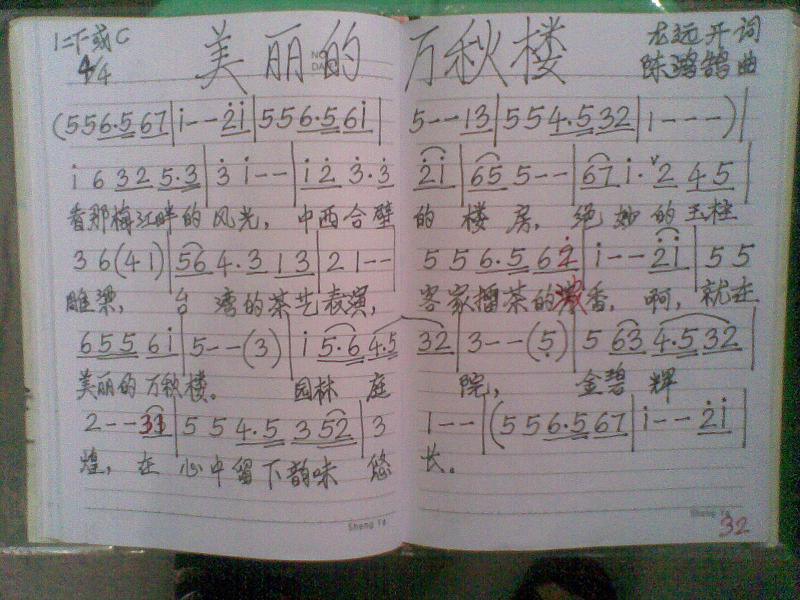 1=下或C 美丽的万秋楼 龙远开词
4/4 陈鸿鹄曲
(5 5 6·5 6 7 | i - - 2 i | 5 5 6·5 6 i | 5 - - 1 3 | 5 5 4·5 3 2 | 1 - - - ) |
i 6 3 2 2 5·3 | 3 i - - | i 2 3·3 2 i | 6 5 5 - - | 6 7 i· ˅ 2 4 5
看那梅江畔的风光, 中西合璧的楼房, 绝妙的玉柱
3 6 (4 1) | 5 6 4·3 1 3 | 2 1 - - | 5 5 6·5 6 2 | i - - 2 i | 5 5
雕梁, 台湾的茶艺表演, 客家擂茶的浓香, 啊, 就在
6 5 5 6 i | 5 - - (3) | i 5·6 4·5 3 2 | 3 - - (5) | 5 6 3 4·5 3 2
美丽的万秋楼。 园林庭院, 金碧辉
2 - - 3 1 | 5 5 4·5 3 5 2 | 3 1 - - | (5 5 6·5 6 7 | i - - 2 i |
煌, 在心中留下韵味悠长。
Sheng Ya
32